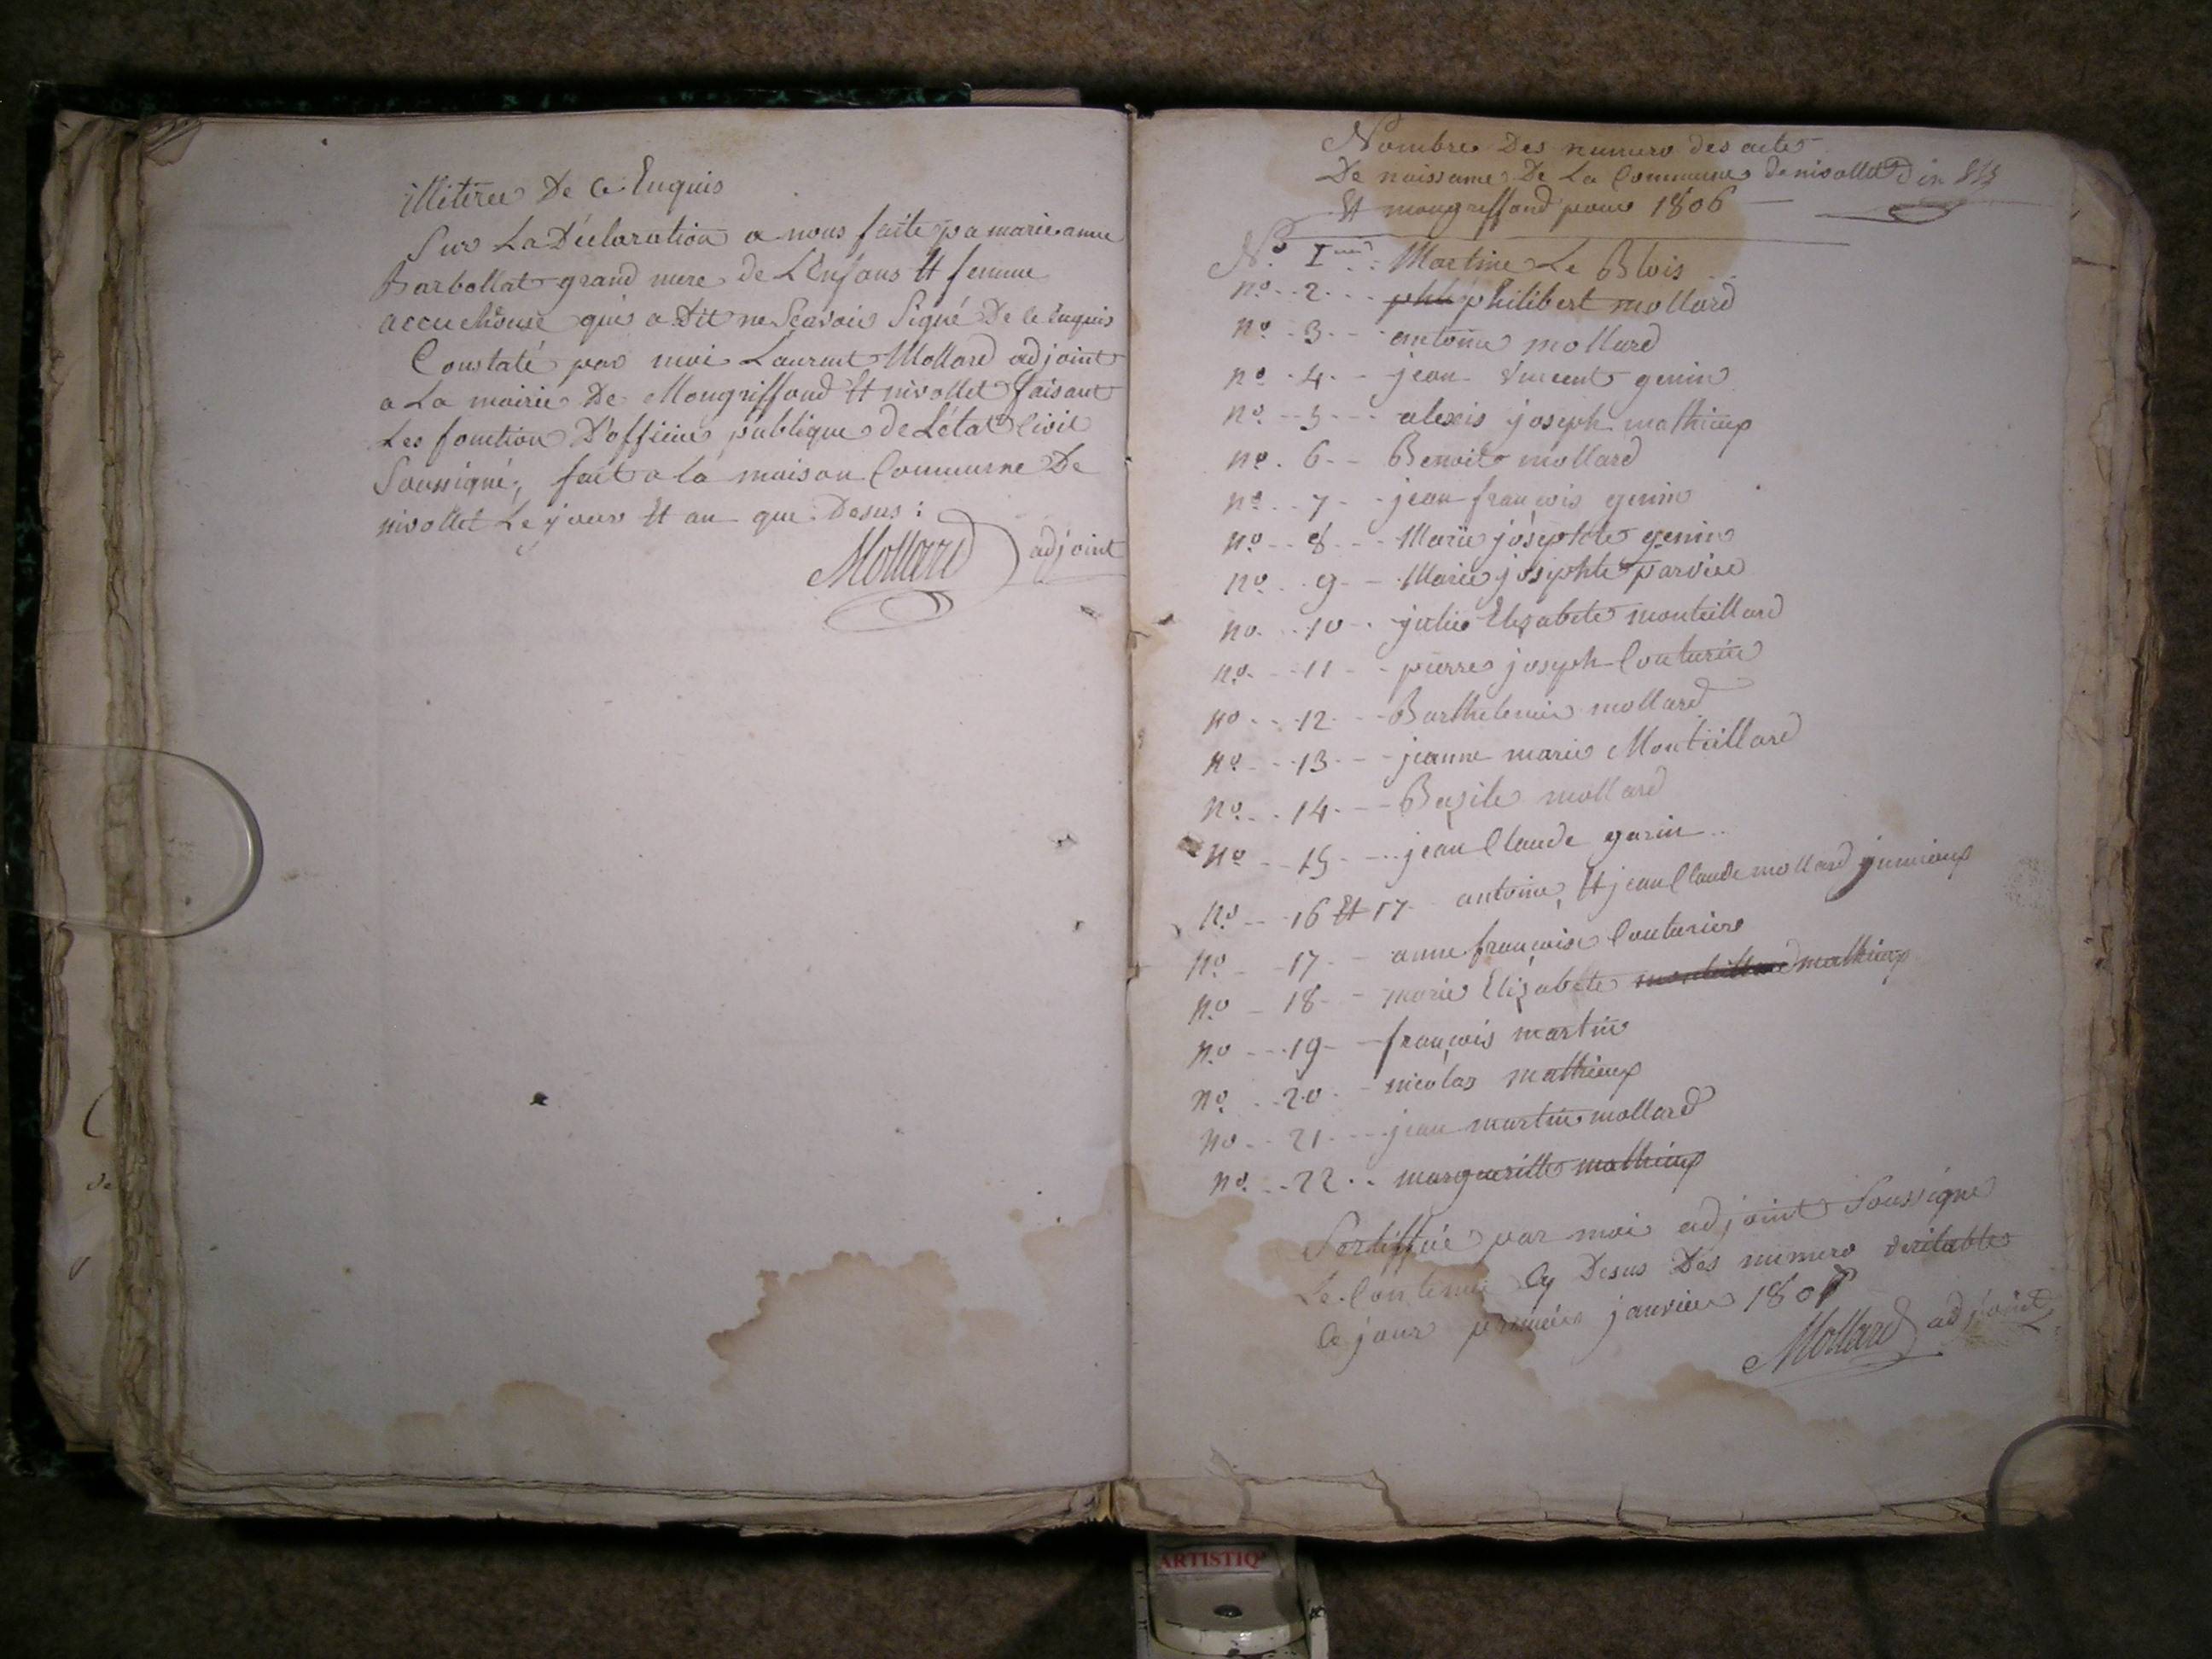 illitéree De Ce Enquis
Sur La Déclaration a nous faite pa marie anne
Barbollat grand mere de L'Enfans Et femme
accuchouse qui a Dit ne Scavoir Signé De ce Enquis
Constaté par moi Laurent Mollard adjoint
a La mairie De Mongriffond Et nivollet faisant
Les fonction D'officier publique de L'état Civil
Soussigné, fait a la maison Commune De
nivollet Le jour Et an que Desus :
Mollard adjoint
Nombre Des numero des actes
De naissance De La Commune de nivollet
Et mongriffond pour 1806
No. 1 Martine Le Blois
no. 2 philibert mollard
no. 3 antoine mollard
no. 4 jean vincent genin
no. 5 alexis joseph mathieux
no. 6 Benoit mollard
no. 7 jean françois genin
no. 8 Marie josephte genin
no. 9 Marie josephte parvie
no. 10 julie Elizabete monteillard
no. 11 pierre joseph Couturier
no. 12 Barthelemie mollard
no. 13 jeanne marie Monteillard
no. 14 Bazile mollard
no. 15 jean Claude garin
no. 16 Et 17 antoine Et jean Claude mollard jumieaux
no. 17 anne françoise Couturier
no. 18 marie Elizabete mathieux
no. 19 françois martin
no. 20 nicolas mathieux
no. 21 jean martin mollard
no. 22 margueritte mathieux
Sertiffié par moi adjoint Soussigné
Le Contenu Cy Desus Des numero veritables
Ce jour premier janvier 1807
Mollard adjoint
ARTISTIQ